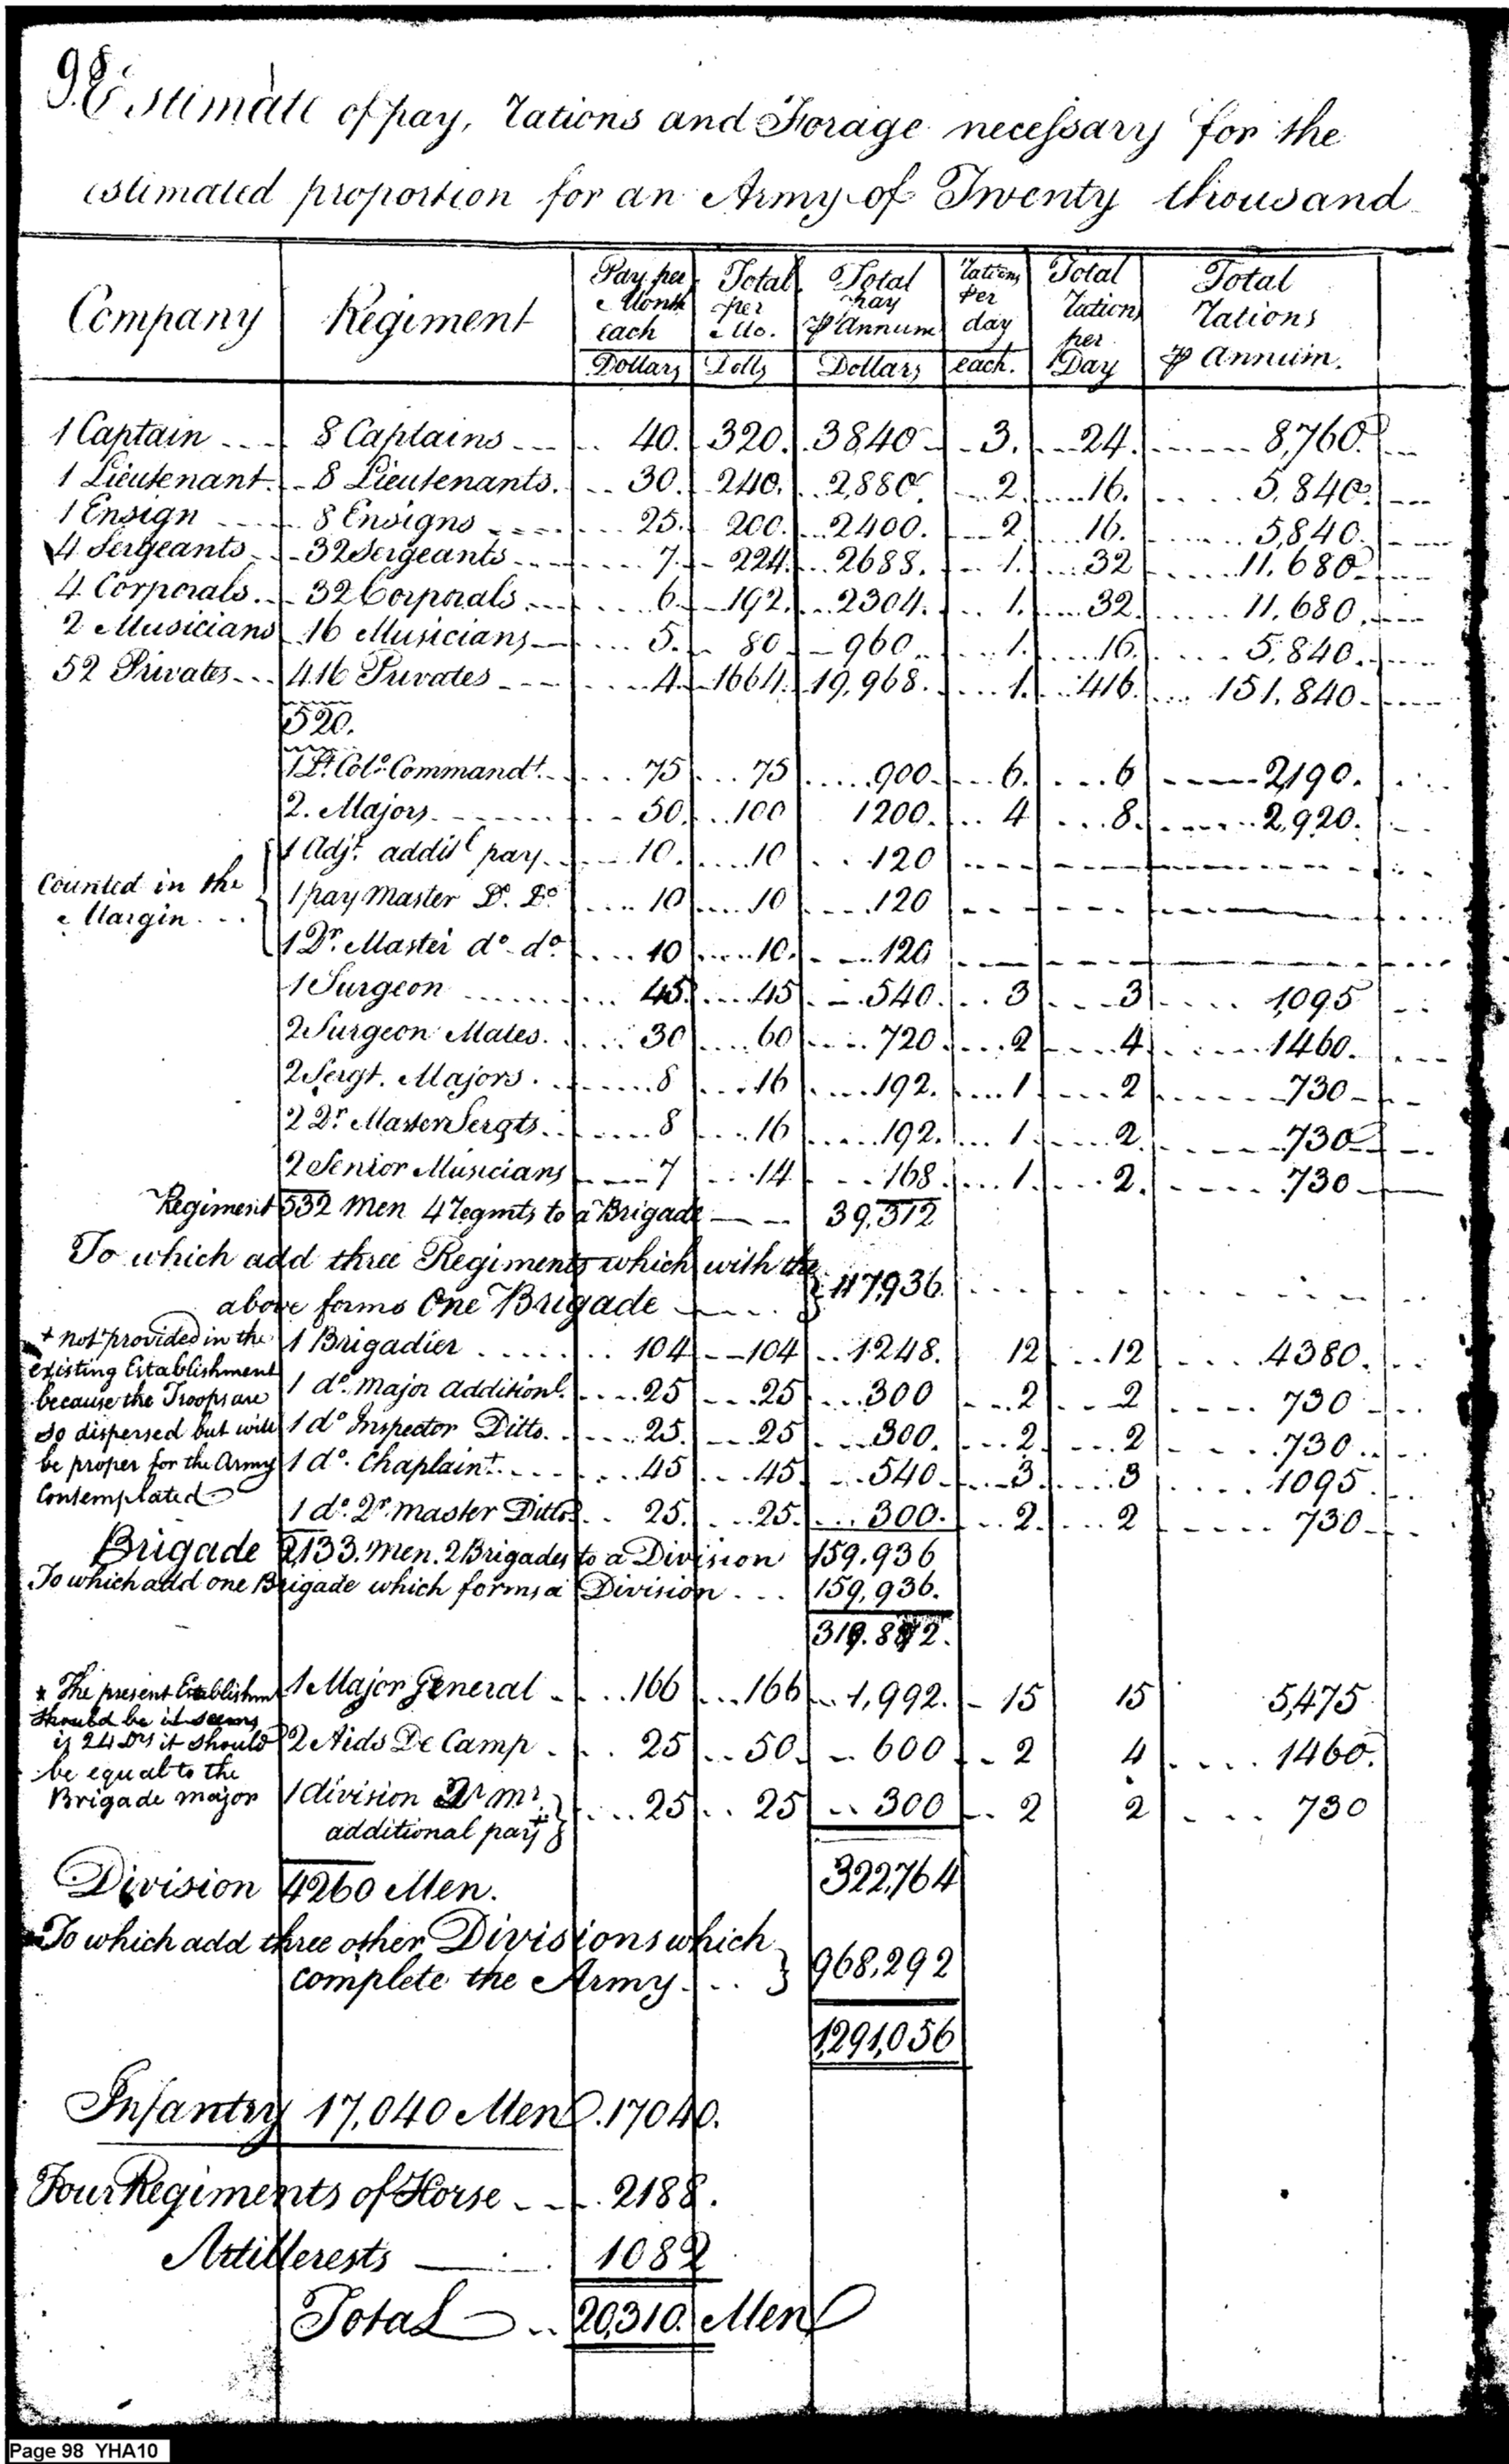 98
Estimate of pay, rations and Forage necessary for the
estimated proportion for an Army of Twenty thousand
Company Regiment Pay per Month each Dollars Total per Mo. Dolls Total pay ⅌ Annum Dollars rations per day each. Total rations per Day Total rations ⅌ Annum.
1 Captain 8 Captains 40. 320. 3840 3. 24. 8,760.
1 Lieutenant. 8 Lieutenants. 30. 240. 2,880. 2. 16. 5,840.
1 Ensign 8 Ensigns 25. 200. 2400. 2. 16. 5,840.
4 Sergeants 32 Sergeants 7. 224. 2688. 1. 32 11,680
4 Corporals. 32 Corporals. 6. 192. 2304. 1. 32. 11,680.
2 Musicians 16 Musicians 5. 80 960. 1. 16. 5,840.
52 Privates 416 Privates 4. 1664. 19,968. 1. 416. 151,840
520.
1 Lt. Colo. Commandt. 75 75 900 6. 6 2190.
2. Majors. 50. 100 1200. 4 8. 2,920.
Counted in the Margin.
1 Adjt. addil pay. 10. 10 120
1 pay Master Do. Do. 10 10 120
1 Qr. Master do. do. 10 10. 120
1 Surgeon 45. 45 540. 3 3 1,095
2 Surgeon Mates. 30 60 720. 2 4 1460.
2 Sergt. Majors. 8 16 192. 1 2 730
2 Qr. Master Sergts. 8 16 192. 1 2. 730
2 Senior Musicians 7 14 168. 1. 2. 730
Regiment 532 Men 4 regmts to a Brigade 39,312
To which add three Regiments which with the
above forms One Brigade 117,936.
+ not provided in the
existing Establishment
because the Troops are
so dispersed but will
be proper for the Army
Contemplated
1 Brigadier 104 104 1248. 12 12 4380.
1 do. major additionl. 25 25 300 2 2 730
1 do Inspector Ditto. 25. 25 300. 2. 2 730.
1 do. Chaplain+. 45 45. 540 3 3 1095.
1 do. Qr. master Ditto 25. 25. 300. 2. 2 730
Brigade 2,133. Men. 2 Brigades to a Division 159.936
To which add one Brigade which forms a Division 159,936.
319.872.
* The present Establishmt
should be it seems
is 24 Drs it should
be equal to the
Brigade major
1 Major General 166 166 1,992. 15 15 5,475
2 Aids De Camp 25 50. 600 2 4 1460.
1 division Qr Mr. additional pay+ 25 25 300 2 2 730
Division 4260 Men. 322,764
To which add three other Divisions which
complete the Army. 968,292
1,291,056
Infantry 17,040 Men 17040.
Four Regiments of Horse 2188.
Artillerests 1082
Total 20,310. Men
Page 98 YHA10